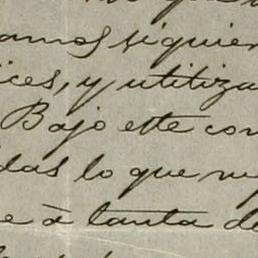 amos siguien
ices, y utiliza
Bajo este con
das lo que me
e à tanta de